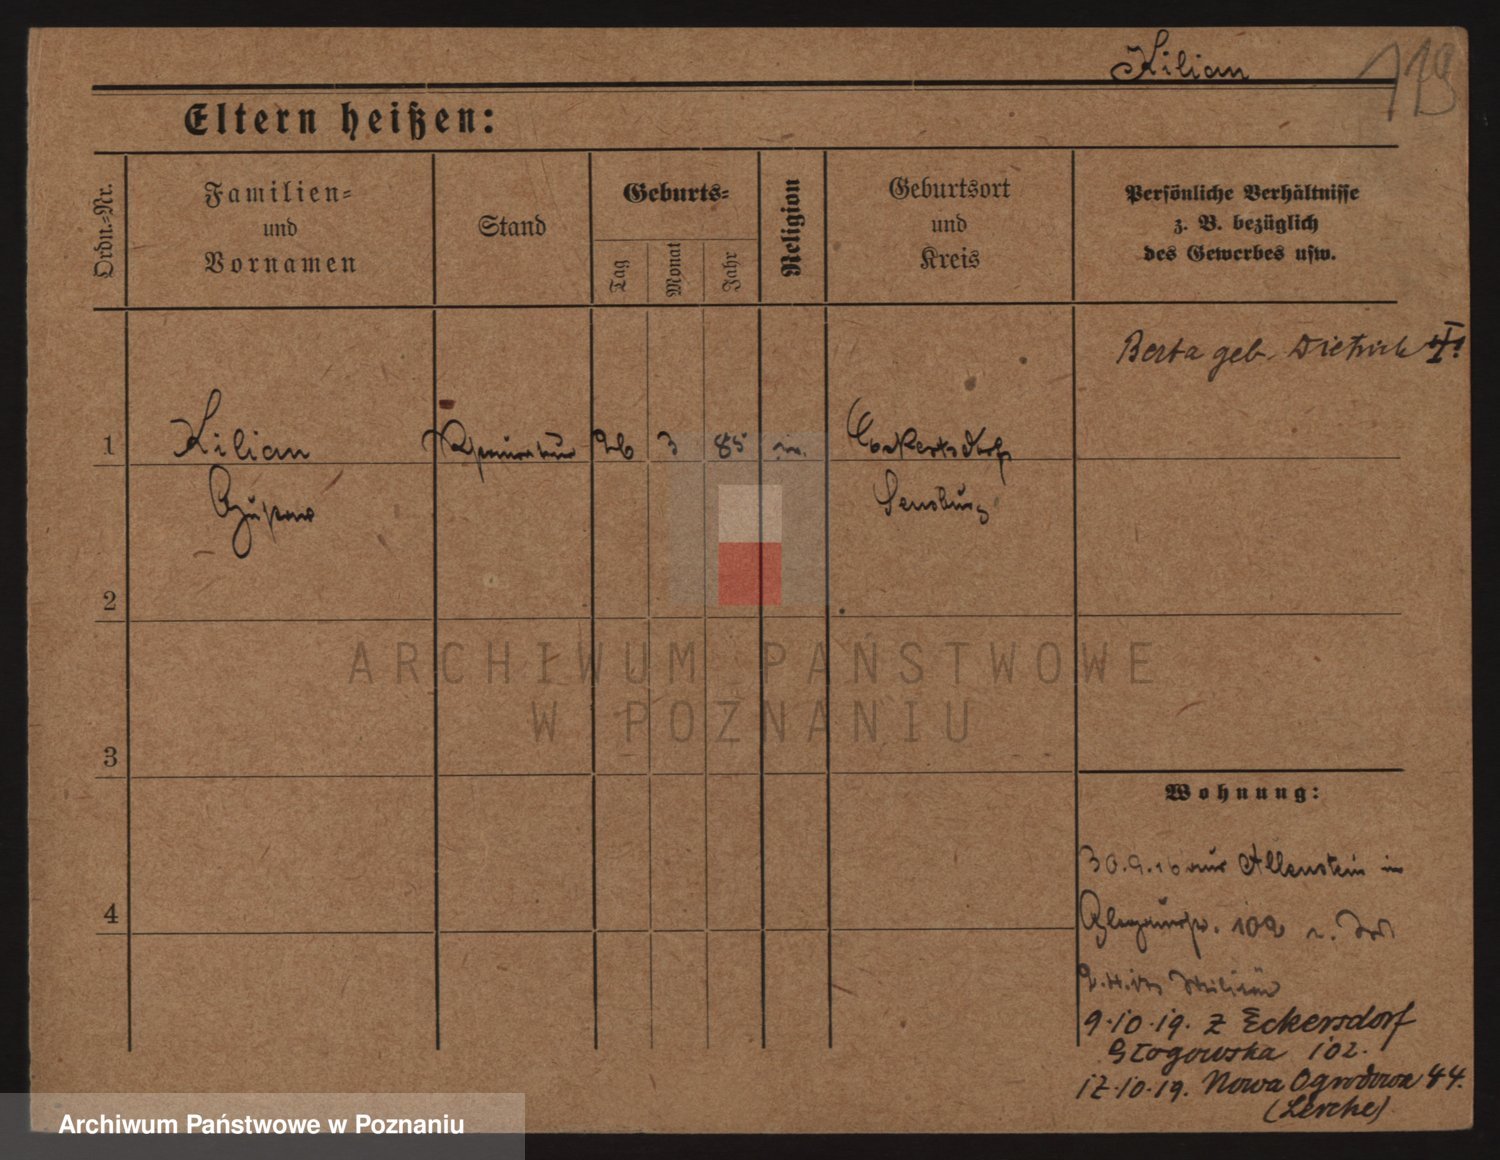 Kilian
119
Eltern heißen:
Ordn.-Nr.
Familien-
und
Vornamen
Stand
Geburts-
Tag
Monat
Jahr
Religion
Geburtsort
und
Kreis
Persönliche Verhältnisse
z. B. bezüglich
des Gewerbes usw.
Berta geb. Dietrich
1 Kilian 26 3 85 Eckertsdorf
Gustav Sensburg
2
3
4
Wohnung:
30.9.16 aus Allenstein in
Glogauerstr. 102
Militär
9.10.19. z Eckersdorf
Głogowska 102.
12.10.19. Nowa Ogrodowa 44.
(Lerche)
ARCHIWUM PAŃSTWOWE
W POZNANIU
Archiwum Państwowe w Poznaniu